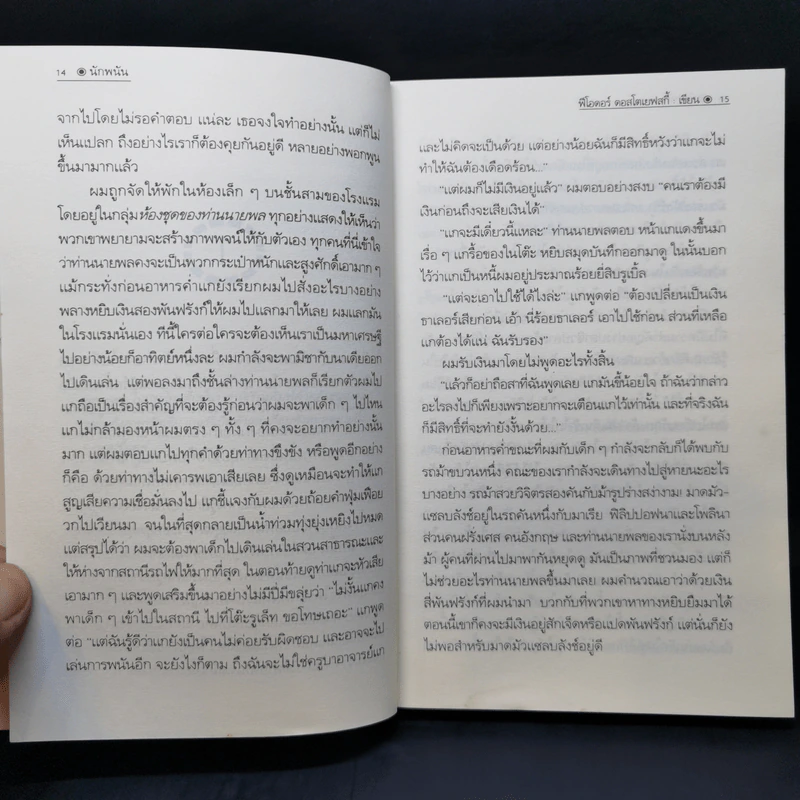 14 ◉ นักพนัน
จากไปโดยไม่รอคำตอบ แน่ละ เธอจงใจทำอย่างนั้น แต่ก็ไม่
เห็นแปลก ถึงอย่างไรเราก็ต้องคุยกันอยู่ดี หลายอย่างพอกพูน
ขึ้นมามากแล้ว
ผมถูกจัดให้พักในห้องเล็ก ๆ บนชั้นสามของโรงแรม
โดยอยู่ในกลุ่มห้องชุดของท่านนายพล ทุกอย่างแสดงให้เห็นว่า
พวกเขาพยายามจะสร้างภาพพจน์ให้กับตัวเอง ทุกคนที่นี่เข้าใจ
ว่าท่านนายพลคงจะเป็นพวกกระเป๋าหนักและสูงศักดิ์เอามาก ๆ
แม้กระทั่งก่อนอาหารค่ำแกยังเรียกผมไปสั่งอะไรบางอย่าง
พลางหยิบเงินสองพันฟรังก์ให้ผมไปแลกมาให้เลย ผมแลกมัน
ในโรงแรมนั่นเอง ทีนี้ใครต่อใครจะต้องเห็นเราเป็นมหาเศรษฐี
ไปอย่างน้อยก็อาทิตย์หนึ่งละ ผมกำลังจะพามิชากับนาเดียออก
ไปเดินเล่น แต่พอลงมาถึงชั้นล่างท่านนายพลก็เรียกตัวผมไป
แกถือเป็นเรื่องสำคัญที่จะต้องรู้ก่อนว่าผมจะพาเด็ก ๆ ไปไหน
แกไม่กล้ามองหน้าผมตรง ๆ ทั้ง ๆ ที่คงจะอยากทำอย่างนั้น
มาก แต่ผมตอบแกไปทุกคำด้วยท่าทางขึงขัง หรือพูดอีกอย่าง
ก็คือ ด้วยท่าทางไม่เคารพเอาเสียเลย ซึ่งดูเหมือนจะทำให้แก
สูญเสียความเชื่อมั่นลงไป แกชี้แจงกับผมด้วยถ้อยคำฟุ่มเฟือย
วกไปเวียนมา จนในที่สุดกลายเป็นน้ำท่วมทุ่งยุ่งเหยิงไปหมด
แต่สรุปได้ว่า ผมจะต้องพาเด็กไปเดินเล่นในสวนสาธารณะและ
ให้ห่างจากสถานีรถไฟให้มากที่สุด ในตอนท้ายดูท่าแกจะหัวเสีย
เอามาก ๆ และพูดเสริมขึ้นมาอย่างไม่มีปี่มีขลุ่ยว่า "ไม่งั้นแกคง
พาเด็ก ๆ เข้าไปในสถานี ไปที่โต๊ะรูเล็ท ขอโทษเถอะ" แกพูด
ต่อ "แต่ฉันรู้ดีว่าแกยังเป็นคนไม่ค่อยรับผิดชอบ และอาจจะไป
เล่นการพนันอีก จะยังไงก็ตาม ถึงฉันจะไม่ใช่ครูบาอาจารย์แก
ฟีโอดอร์ ดอสโตเยฟสกี้ : เขียน ◉ 15
และไม่คิดจะเป็นด้วย แต่อย่างน้อยฉันก็มีสิทธิ์หวังว่าแกจะไม่
ทำให้ฉันต้องเดือดร้อน..."
"แต่ผมก็ไม่มีเงินอยู่แล้ว" ผมตอบอย่างสงบ "คนเราต้องมี
เงินก่อนถึงจะเสียเงินได้"
"แกจะมีเดี๋ยวนี้แหละ" ท่านนายพลตอบ หน้าแกแดงขึ้นมา
เรื่อ ๆ แกรื้อของในโต๊ะ หยิบสมุดบันทึกออกมาดู ในนั้นบอก
ไว้ว่าแกเป็นหนี้ผมอยู่ประมาณร้อยยี่สิบรูเบิ้ล
"แต่จะเอาไปใช้ได้ไงล่ะ" แกพูดต่อ "ต้องเปลี่ยนเป็นเงิน
ธาเลอร์เสียก่อน เอ้า นี่ร้อยธาเลอร์ เอาไปใช้ก่อน ส่วนที่เหลือ
แกต้องได้แน่ ฉันรับรอง"
ผมรับเงินมาโดยไม่พูดอะไรทั้งสิ้น
"แล้วก็อย่าถือสาที่ฉันพูดเลย แกมันขี้น้อยใจ ถ้าฉันว่ากล่าว
อะไรลงไปก็เพียงเพราะอยากจะเตือนแกไว้เท่านั้น และที่จริงฉัน
ก็มีสิทธิ์ที่จะทำยังงั้นด้วย..."
ก่อนอาหารค่ำขณะที่ผมกับเด็ก ๆ กำลังจะกลับก็ได้พบกับ
รถม้าขบวนหนึ่ง คณะของเรากำลังจะเดินทางไปสู่หายนะอะไร
บางอย่าง รถม้าสวยวิจิตรสองคันกับม้ารูปร่างสง่างาม! มาดมัว-
แซลบลังช์อยู่ในรถคันหนึ่งกับมาเรีย ฟิลิปปอฟนาและโพลินา
ส่วนคนฝรั่งเศส คนอังกฤษ และท่านนายพลของเรานั่งบนหลัง
ม้า ผู้คนที่ผ่านไปมาพากันหยุดดู มันเป็นภาพที่ชวนมอง แต่ก็
ไม่ช่วยอะไรท่านนายพลขึ้นมาเลย ผมคำนวณเอาว่าด้วยเงิน
สี่พันฟรังก์ที่ผมนำมา บวกกับที่พวกเขาหาทางหยิบยืมมาได้
ตอนนี้เขาก็คงจะมีเงินอยู่สักเจ็ดหรือแปดพันฟรังก์ แต่นั่นก็ยัง
ไม่พอสำหรับมาดมัวแซลบลังช์อยู่ดี